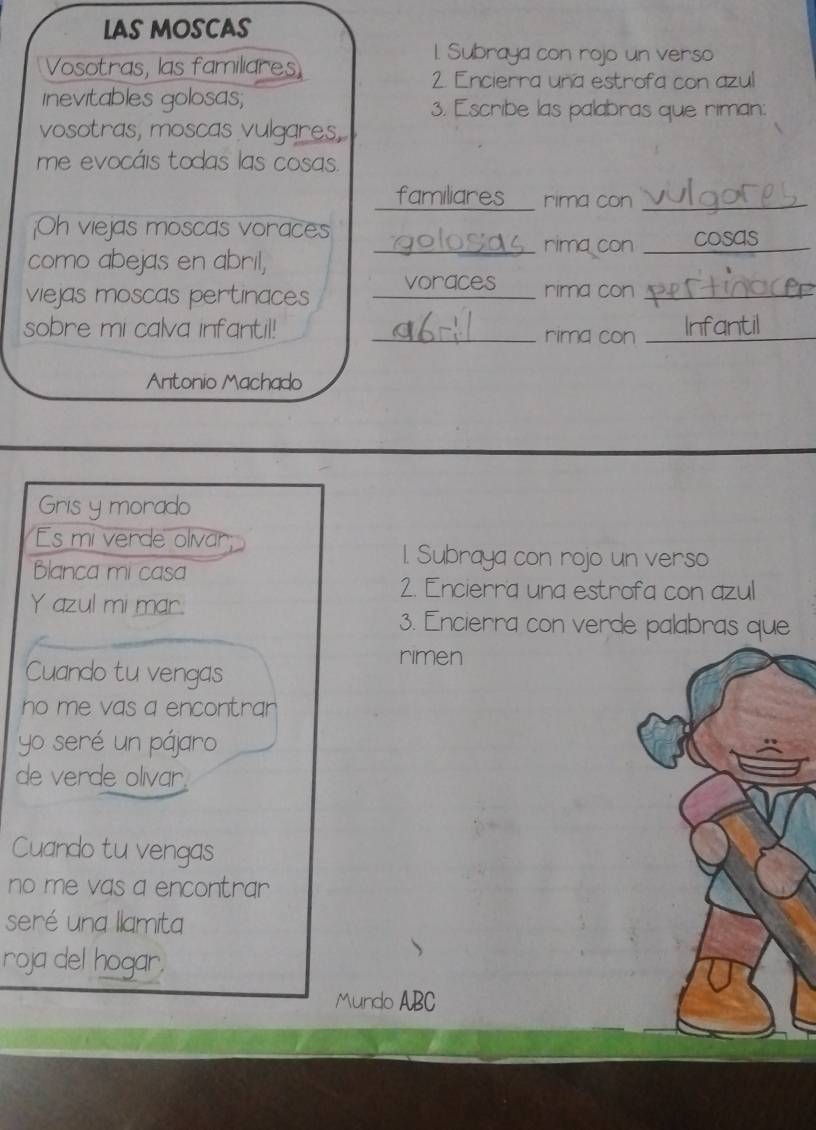 LAS MOSCAS
Vosotras, las familiares,
inevitables golosas,
vosotras, moscas vulgares,
me evocáis todas las cosas.
¡Oh viejas moscas voraces
como abejas en abril,
viejas moscas pertinaces
sobre mi calva infantil!
Antonio Machado
1. Subraya con rojo un verso
2. Encierra una estrofa con azul
3. Escribe las palabras que riman:
familiares rima con vulgares
golosas rima con cosas
voraces rima con pertinaces
abril rima con Infantil
Gris y morado
Es mi verde olivar;
Blanca mi casa
Y azul mi mar.
Cuando tu vengas
no me vas a encontrar
yo seré un pájaro
de verde olivar.
Cuando tu vengas
no me vas a encontrar
seré una llamita
roja del hogar.
1. Subraya con rojo un verso
2. Encierra una estrofa con azul
3. Encierra con verde palabras que
rimen
Mundo ABC